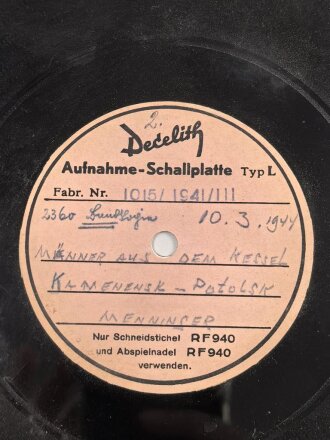 2.
Decelith
Aufnahme-Schallplatte Typ L
Fabr. Nr. 1015/1941/III
2360 10.3.1944
MÄNNER AUS DEM KESSEL
KAMENENSK - PODOLSK
MENNINGER
Nur Schneidstichel RF940
und Abspielnadel RF940
verwenden.